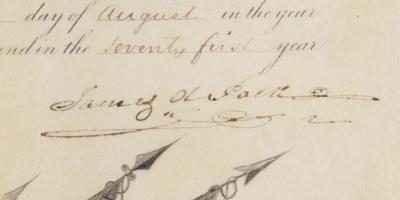 day of August in the year
and in the Seventy first year
James K Polk